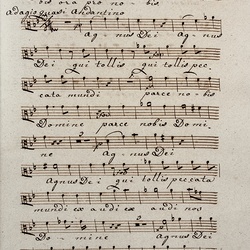 bis ora pro no - bis
Adagio quasi Andantino
Ag - nus Dei Agnus
Dei qui tollis qui tollis pec
cata mundi parce no - bis
Domine parce nobis Domi -
ne Ag - nus Dei
Agnus Dei qui tollis peccata
mundi ex audi ex audi nos
Do - mine Agnus Dei